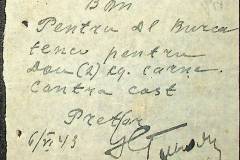 Bon
Pentru dl Burca
tencu pentru
Dou (2) kg. carne
contra cost
Pretor
6/VI 43